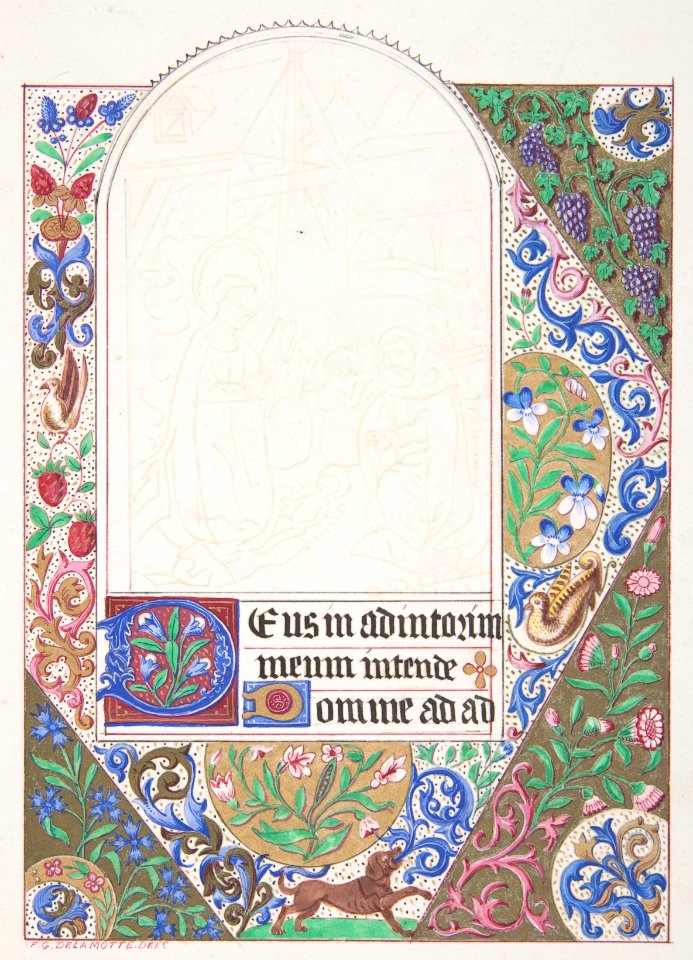 Deus in adintorim
meum intende
Domine ad ad
F. G. DELAMOTTE. DELT.